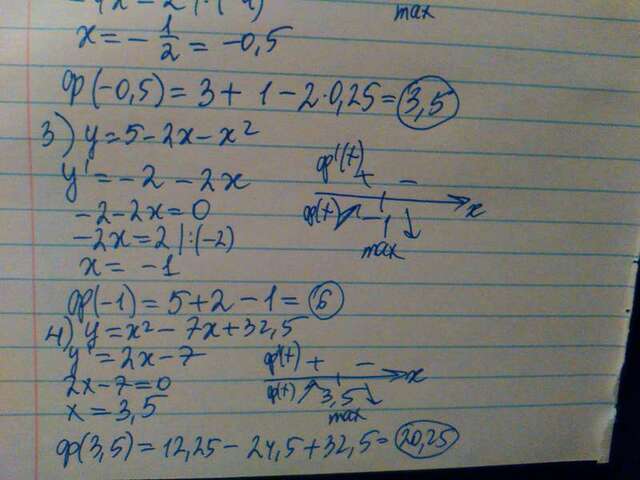 max
x = - 1/2 = -0,5
φ(-0,5) = 3 + 1 - 2·0,25 = 3,5
3) y = 5 - 2x - x²
y' = -2 - 2x
-2 - 2x = 0
-2x = 2 |:(-2)
x = -1
φ'(t) + -
φ(t) -1 x
max
φ(-1) = 5 + 2 - 1 = 6
4) y = x² - 7x + 32,5
y' = 2x - 7
2x - 7 = 0
x = 3,5
φ'(t) + -
φ(t) 3,5 x
max
φ(3,5) = 12,25 - 24,5 + 32,5 = 20,25